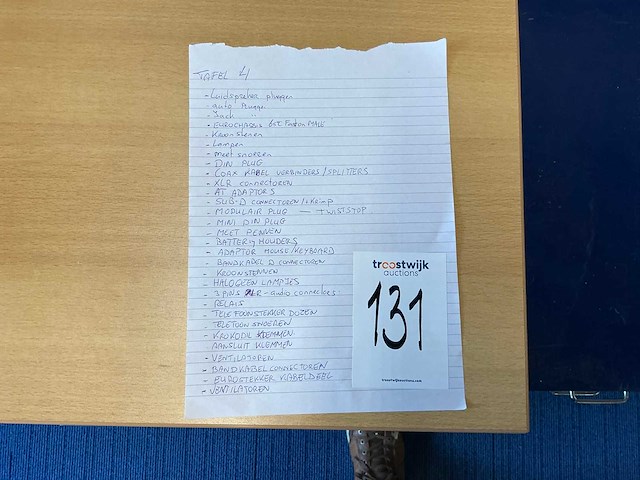 TAFEL 4
- Luidspreker pluggen
- auto Pluggen
- Jack "
- EUROCHASSIS MALE
- Kroonstenen
- Lampen
- meet snoeren
- DIN PLUG
- COAX KABEL VERBINDERS / SPLITTERS
- XLR connectoren
- AT ADAPTORS
- SUB-D CONNECTOREN / krimp
- MODULAIR PLUG — TWISTSTOP
- MINI DIN PLUG
- MEET PENNEN
- BATTERIJ HOUDERS
- ADAPTOR MOUSE/KEYBOARD
- BANDKABEL D CONNECTOREN
- KROONSTENNEN
- HALOGEEN LAMPJES
- 3 PINS XLR - audio connectoes
- RELAIS
- TELEFOONSTEKKER DOZEN
- TELEFOON SNOEREN
- KROKODIL KLEMMEN
AANSLUIT KLEMMEN
- VENTILATOREN
- BANDKABEL CONNECTOREN
- EUROSTEKKER KABELDEEL
- VENTILATOREN
troostwijk
auctions
131
troostwijkauctions.com